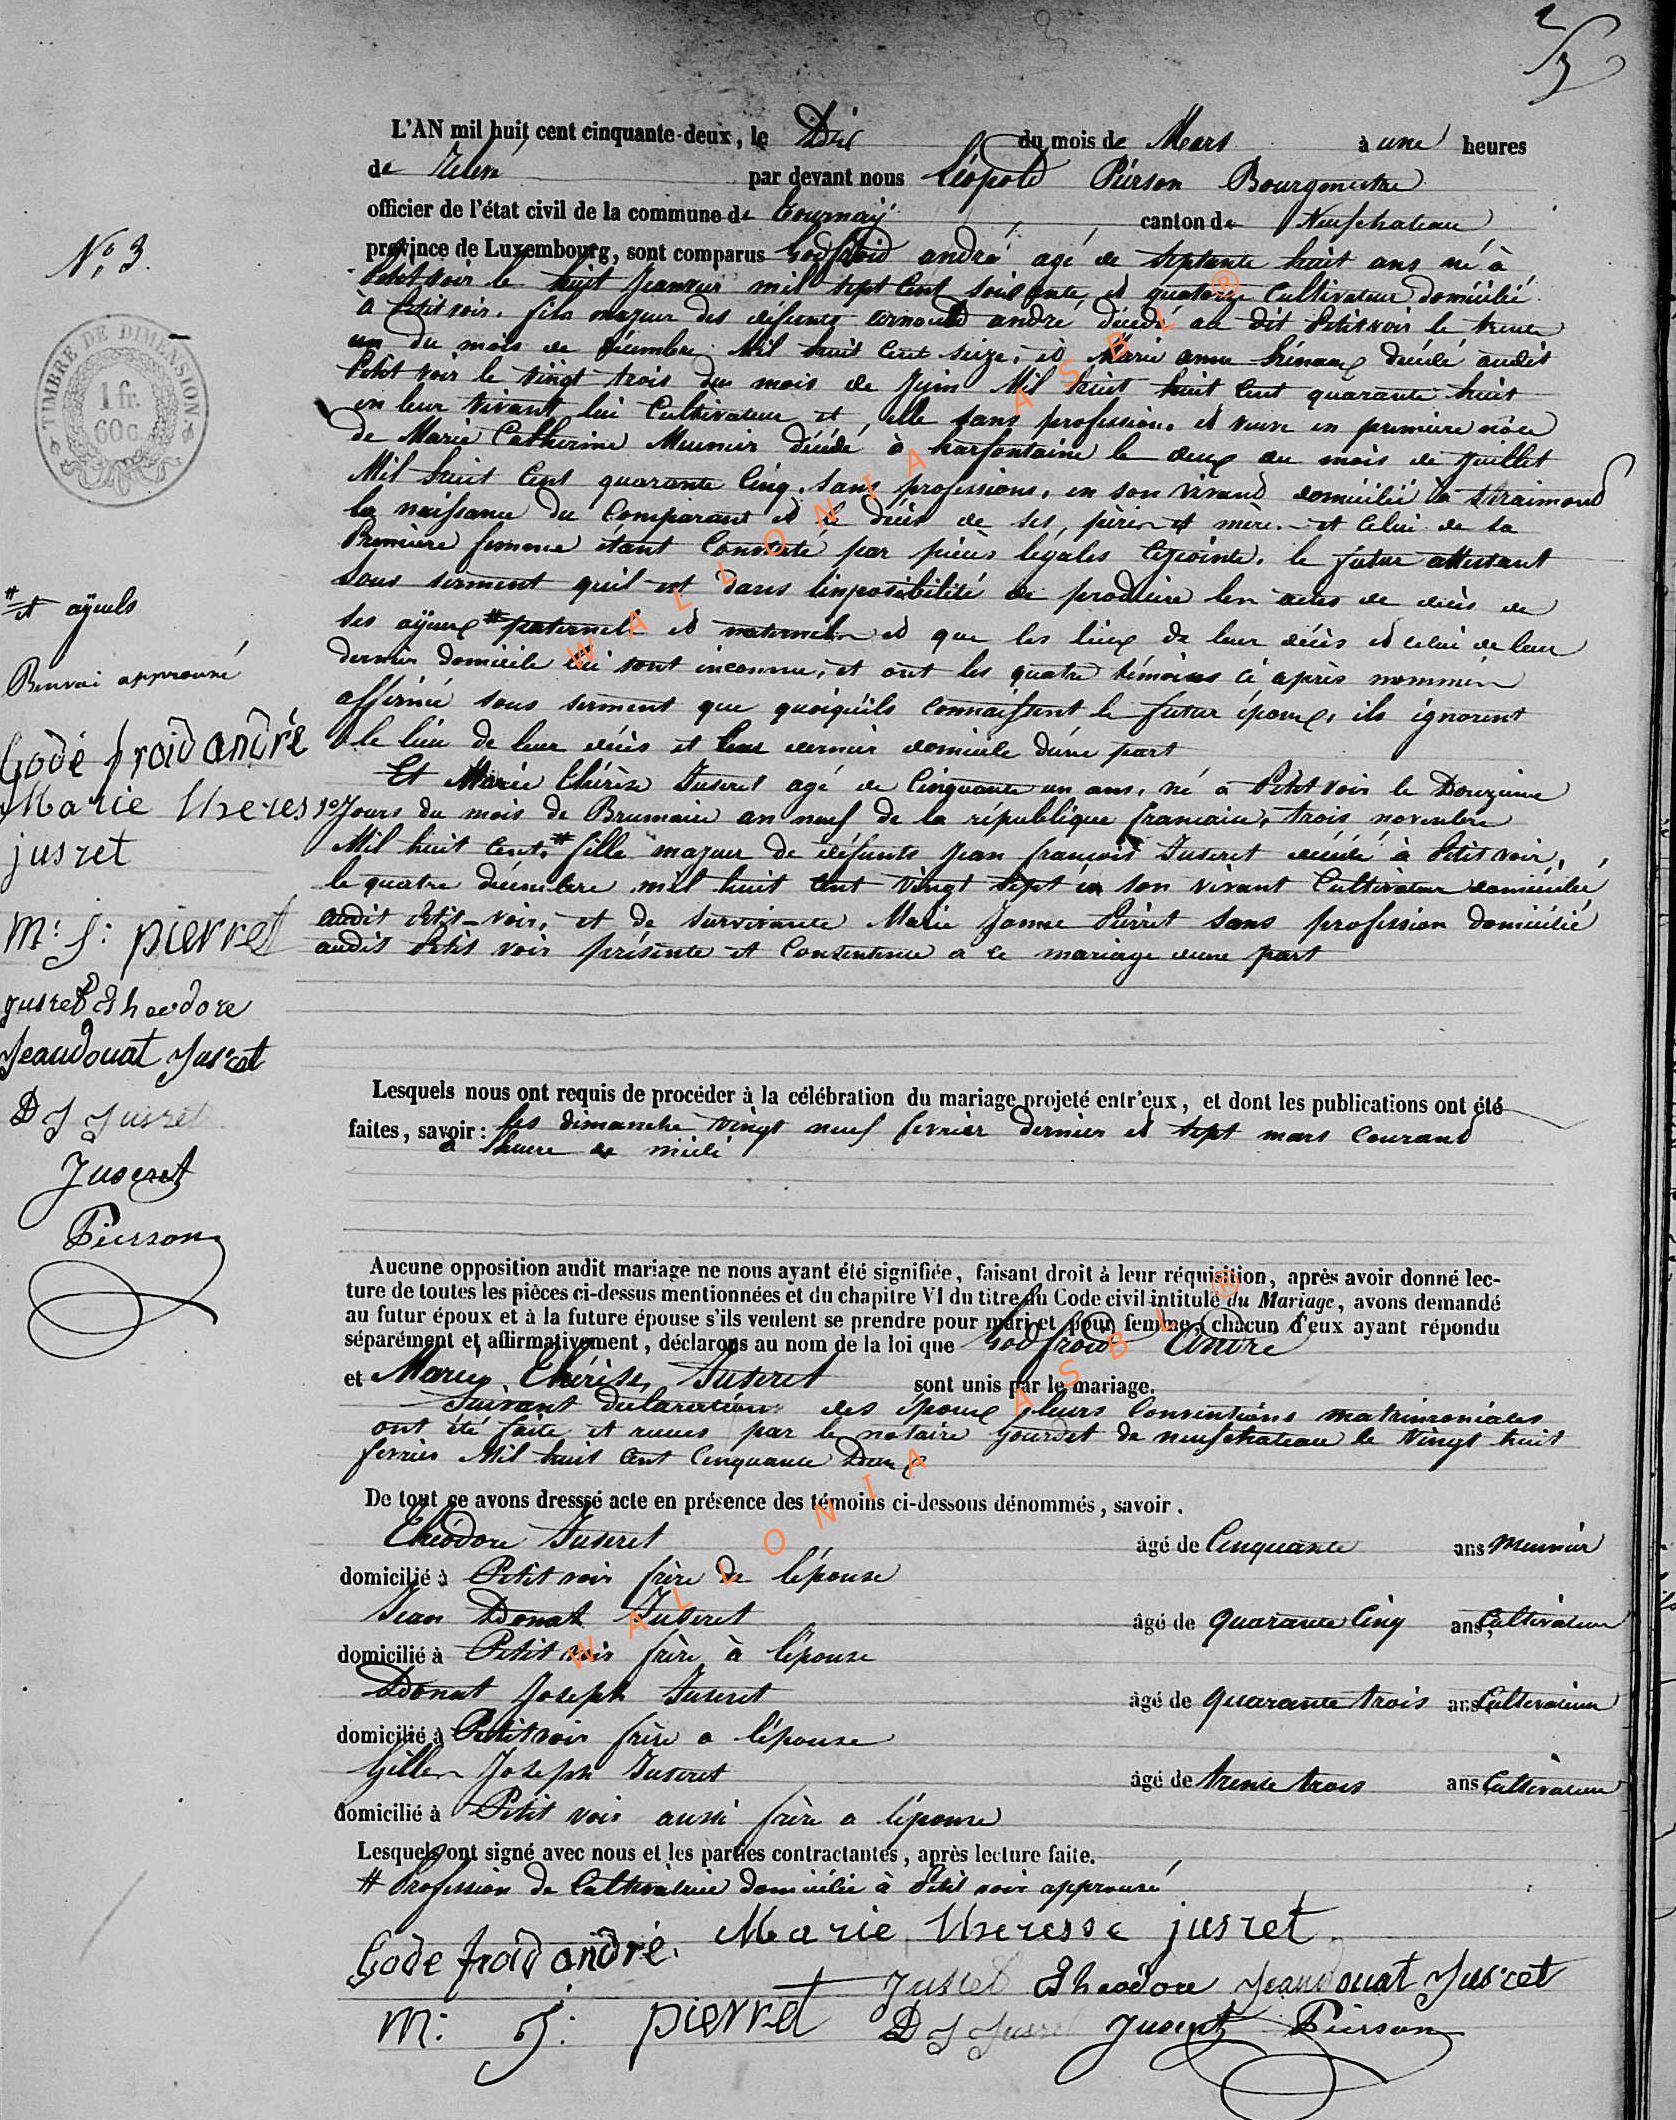 L'AN mil huit cent cinquante-deux, le Dix du mois de Mars à une heures
de relevé par devant nous Léopold Pierson Bourgmestre
officier de l'état civil de la commune de Tournay canton de Neufchateau
province de Luxembourg, sont comparus Godfroid andré agé de septante huit ans né à
Petitvoir le huit Jeanvier mil sept Cent soixante, et quatorze Cultivateur domicilié
à Petitvoir. fils majeur des défunts arnould andré décédé au dit Petitvoir le trente
un du mois de décembre Mil huit Cent seize, et Marie anne décédé audit
Petit voir le vingt trois du mois de Juin Mil huit huit Cent quarante huit
en leur vivant lui Cultivateur et elle sans profession. et veuve en première nôce
de Marie Catherine Meunier décédé à harfontaine le deux du mois de Juillet
Mil huit Cent quarante Cinq. sans professions. en son vivant domicilié à
la naissance du Comparant et le décès de ses, pères et mère. et Celui de sa
Première femme etant Constaté par pièces légales Cijointe. le futur attestant
sous serment qu'il est dans l'imposibilité de produire les actes de décès de
ses ayeux # paternels et maternels et que les lieux de leur décès et celui de leur
dernier domicile lui sont inconnu, et ont les quatre témoins ci après nommés
affirmé sous serment que quoiqu'ils connaissent le futur époux, ils ignorent
le lieu de leur décès et leur dernier domicile d'une part
Et Marie Thérèse Juseret agé de Cinquante un ans, né à Petit voir le Douzième
Jours du mois de Brumaire an neuf de la république francaise, trois novembre
Mil huit Cent, # fille majeur de défunts Jean françois Juseret décédé à Petit voir,
le quatre décembre mil huit Cent vingt sept en son vivant Cultivateur domicilié
audit Petit-voir, et de survivante Marie Jeanne Pierret sans profession domicilié
audit Petit voir présente et Consentente a ce mariage dune part
Lesquels nous ont requis de procéder à la célébration du mariage projeté entr'eux, et dont les publications ont été
faites, savoir : les dimanche vingt neuf fevrier dernier et sept mars courand
à l'heure de midi
Aucune opposition audit mariage ne nous ayant été signifiée, faisant droit à leur réquisition, après avoir donné lec-
ture de toutes les pièces ci-dessus mentionnées et du chapitre VI du titre du Code civil intitulé du Mariage, avons demandé
au futur époux et à la future épouse s'ils veulent se prendre pour mari et pour femme, chacun d'eux ayant répondu
séparément et affirmativement, déclarons au nom de la loi que Godfroid Andre
et Marie Thérèse Juseret sont unis par le mariage.
Suivant déclaration des époux leurs Conventions matrimoniales
ont été faite et recues par le notaire Gourdet de neufchateau le vingt huit
fevrier Mil huit Cent Cinquante Deux
De tout ce avons dresssé acte en présence des témoins ci-dessous dénommés, savoir.
Théodore Juseret âgé de Cinquante ans Meunier
domicilié à Petit voir frère de l'épouse
Jean Donat Juseret âgé de quarante Cinq ans, Cultivateur
domicilié à Petit voir frère à l'épouse
Donat Joseph Juseret âgé de quarante trois ans Cultivateur
domicilié à Petitvoir frère a l'épouse
Gilles Joseph Juseret âgé de trente trois ans Cultivateur
domicilié à Petit voir aussi frère a l'épouse
Lesquels ont signé avec nous et les parties contractantes, après lecture faite.
# Profession de Cultivatrice domiciliée à Petit voir approuvé
Gode froid andré. Marie theresse jusret
Jusret Theodore Jeandonat Jusret
m: j: pierret D J Jusret Juseret Pierson
No, 3.
TIMBRE DE DIMENSION
1 fr.
60 c.
# et ayeuls
Renvoi approuvé
Godé froid andré
Marie theres
jusret
m: j: pierret
jusret Theodore
Jeandonat Jusret
D J Jusret
Juseret
Pierson
WALLONIA ASBL ®
WALLONIA ASBL ®